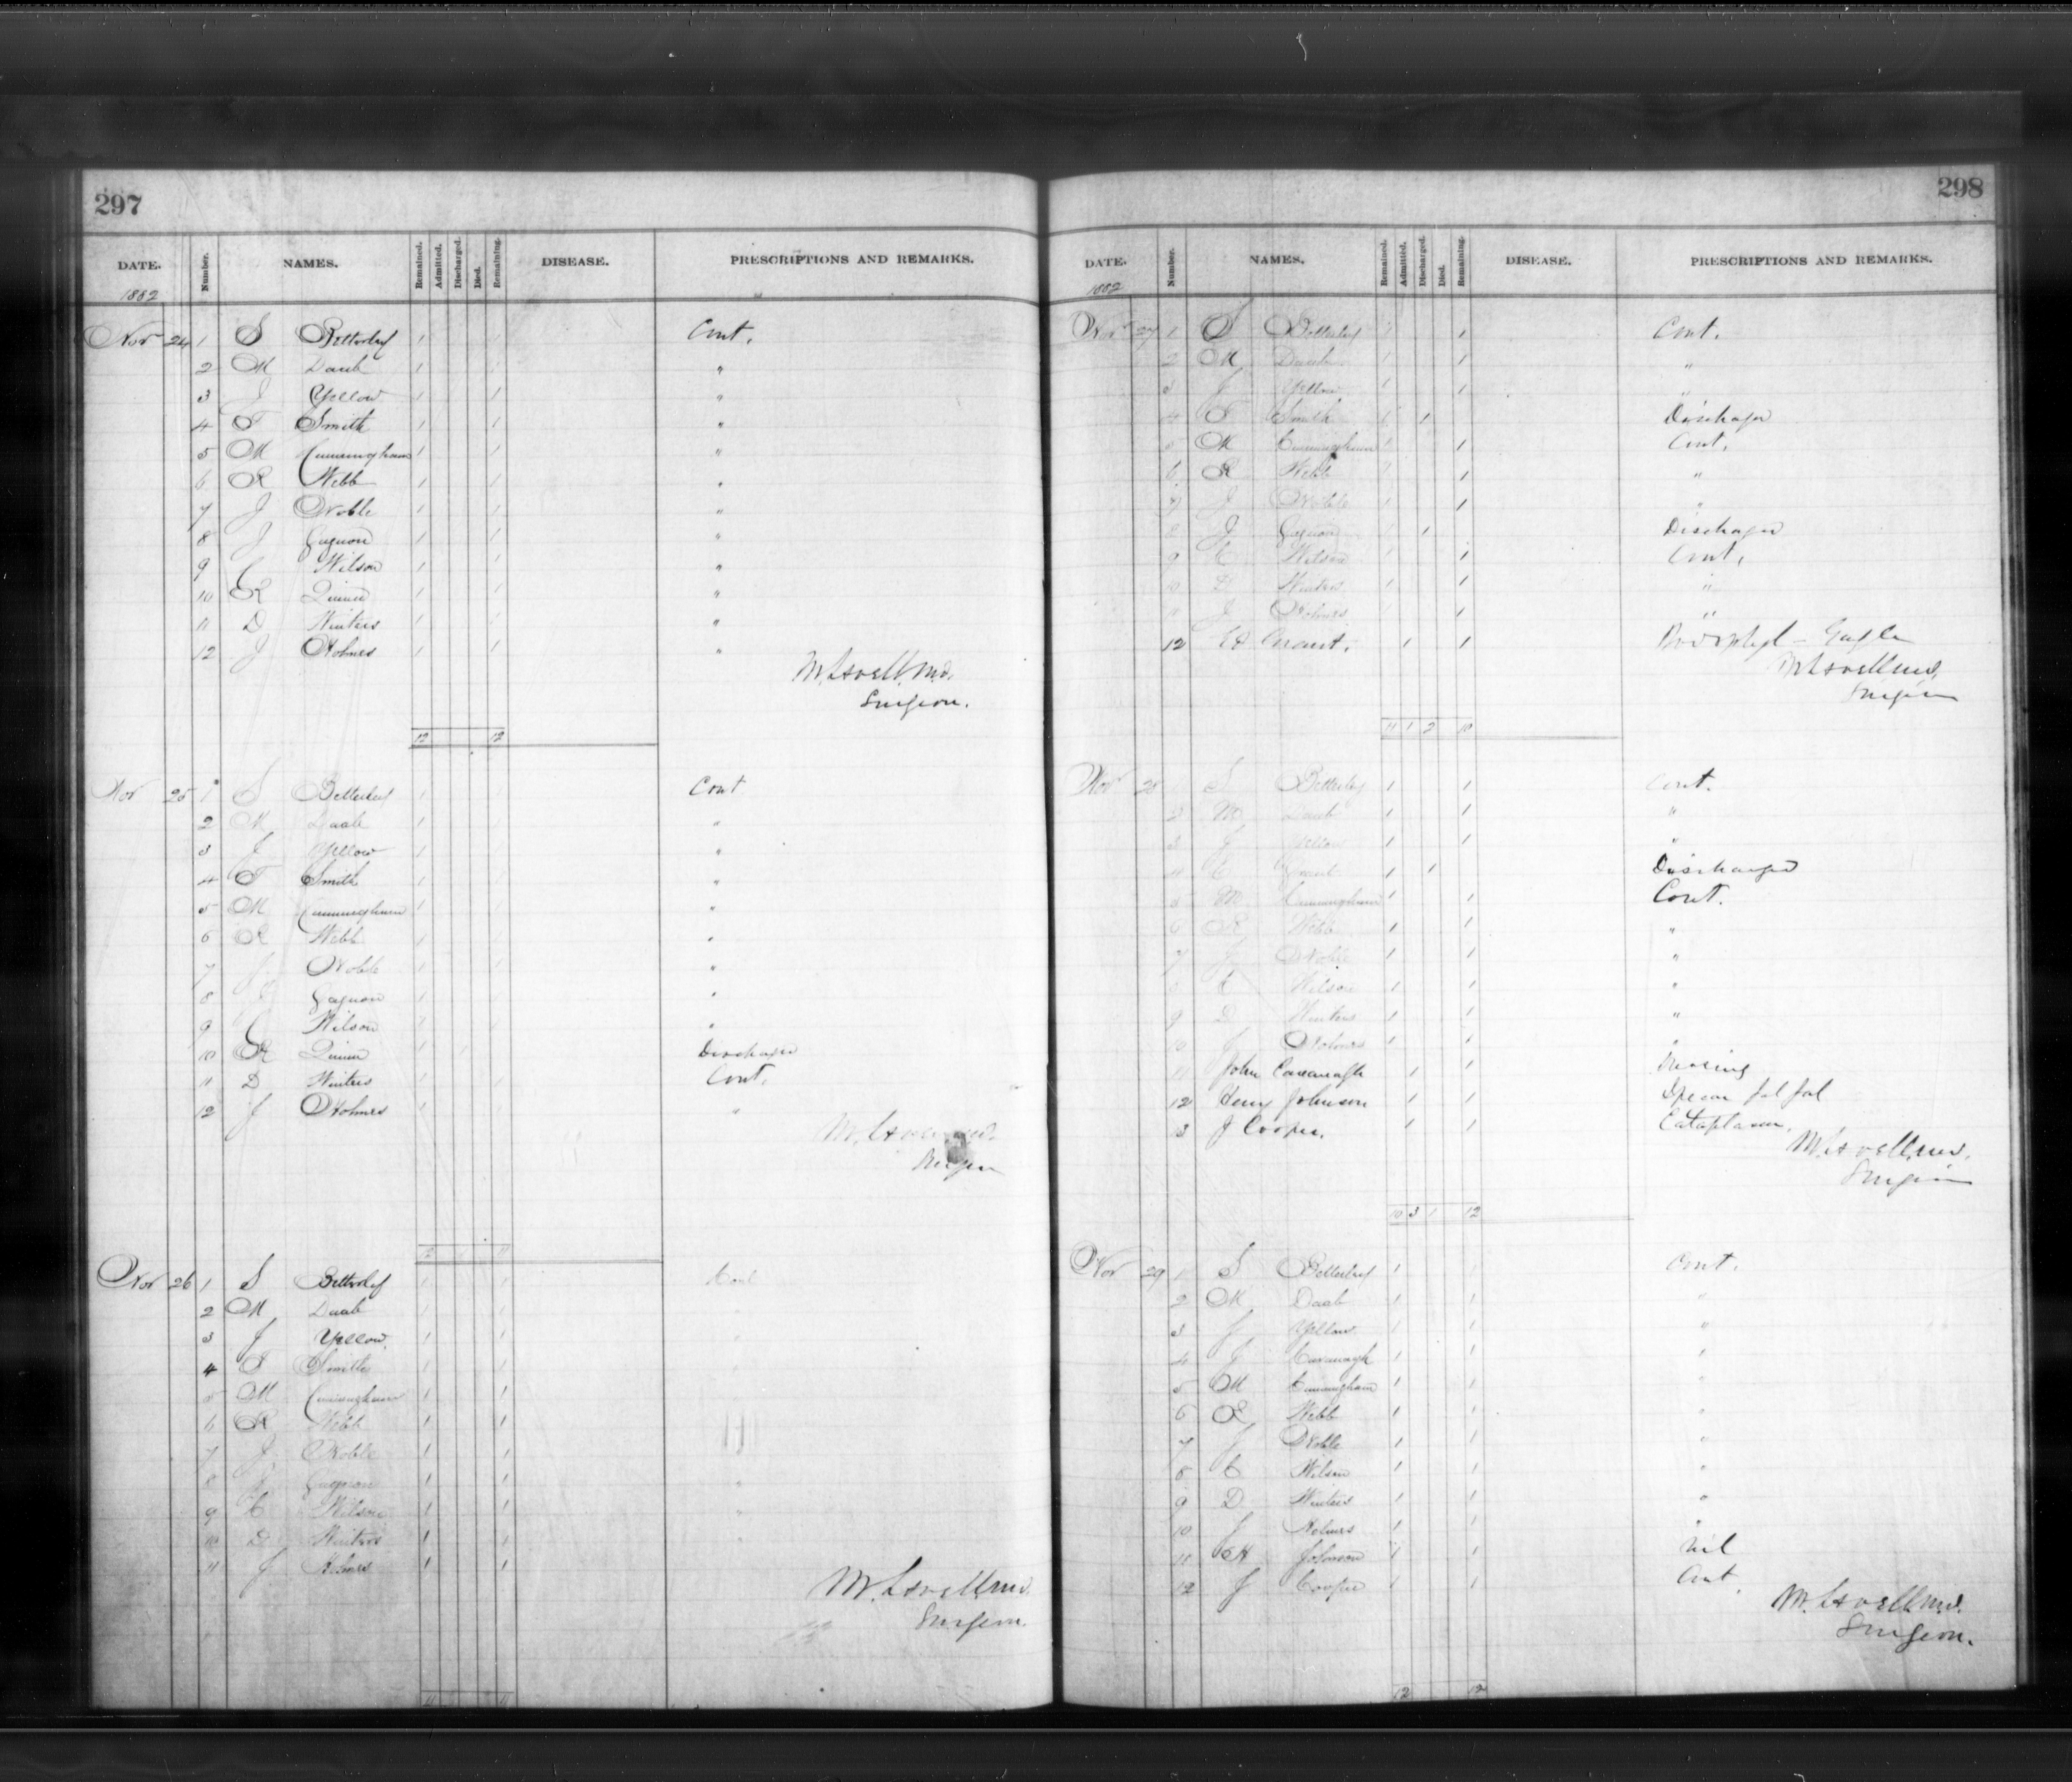 297
DATE. Number. NAMES. Remained. Admitted. Discharged. Died. Remaining. DISEASE. PRESCRIPTIONS AND REMARKS.
1882
Nov 24 1 S Betterley 1 1 Cont.
2 M Daub 1 1 "
3 J Yellow 1 1 "
4 T Smith 1 1 "
5 M Cunningham 1 1 "
6 R Webb 1 1 "
7 J Noble 1 1 "
8 J Gagnon 1 1 "
9 C Wilson 1 1 "
10 R Quinn 1 1 "
11 D Winters 1 1 "
12 J Holmes 1 1 "
M. Lavell, M.D.
Surgeon.
12 12
Nov 25 1 S Betterley 1 1 Cont
2 M Daub 1 1 "
3 J Yellow 1 1 "
4 T Smith 1 1 "
5 M Cunningham 1 1 "
6 R Webb 1 1 "
7 J Noble 1 1 "
8 J Gagnon 1 1 "
9 C Wilson 1 1 "
10 R Quinn 1 1 Discharged
11 D Winters 1 1 Cont.
12 J Holmes 1 1 "
M. Lavell M.D.
Surgeon
12 1 11
Nov 26 1 S Betterley 1 1 Cont
2 M Daub 1 1 "
3 J Yellow 1 1 "
4 T Smith 1 1 "
5 M Cunningham 1 1
6 R Webb 1 1
7 J Noble 1 1
8 J Gagnon 1 1 "
9 C Wilson 1 1 "
10 D Winters 1 1 "
11 J Holmes 1 1
M. Lavell M.D.
Surgeon.
11 11
298
DATE. Number. NAMES. Remained. Admitted. Discharged. Died. Remaining. DISEASE. PRESCRIPTIONS AND REMARKS.
1882
Nov 27 1 S Betterley 1 1 Cont.
2 M Daub 1 1 "
3 J Yellow 1 1 "
4 T Smith 1 1 Discharged
5 M Cunningham 1 1 Cont.
6 R Webb 1 1 "
7 J Noble 1 1 "
8 J Gagnon 1 1 Discharged
9 C Wilson 1 1 Cont.
10 D Winters 1 1 "
11 J Holmes 1 1 "
12 Ed Grant. 1 1 Gargle
M Lavell M.D.
Surgeon
11 1 2 10
Nov 28 1 S Betterley 1 1 Cont.
2 M Daub 1 1 "
3 J Yellow 1 1 "
4 E Grant 1 1 Discharged
5 M Cunningham 1 1 Cont.
6 R Webb 1 1 "
7 J Noble 1 1 "
8 C Wilson 1 1 "
9 D Winters 1 1 "
10 J Holmes 1 1 "
11 John Cavanagh 1 1
12 Henry Johnson 1 1
13 J Cooper. 1 1 Cataplasm.
M. Lavell M.D.
Surgeon
10 3 1 12
Nov 29 1 S Betterley 1 1 Cont.
2 M Daub 1 1 "
3 J Yellow 1 1 "
4 J Cavanagh 1 1 "
5 M Cunningham 1 1 "
6 R Webb 1 1 "
7 J Noble 1 1 "
8 C Wilson 1 1 "
9 D Winters 1 1 "
10 J Holmes 1 1 "
11 H Johnson 1 1 Nil
12 J Cooper 1 1 Cont.
M. Lavell M.D.
Surgeon.
12 12